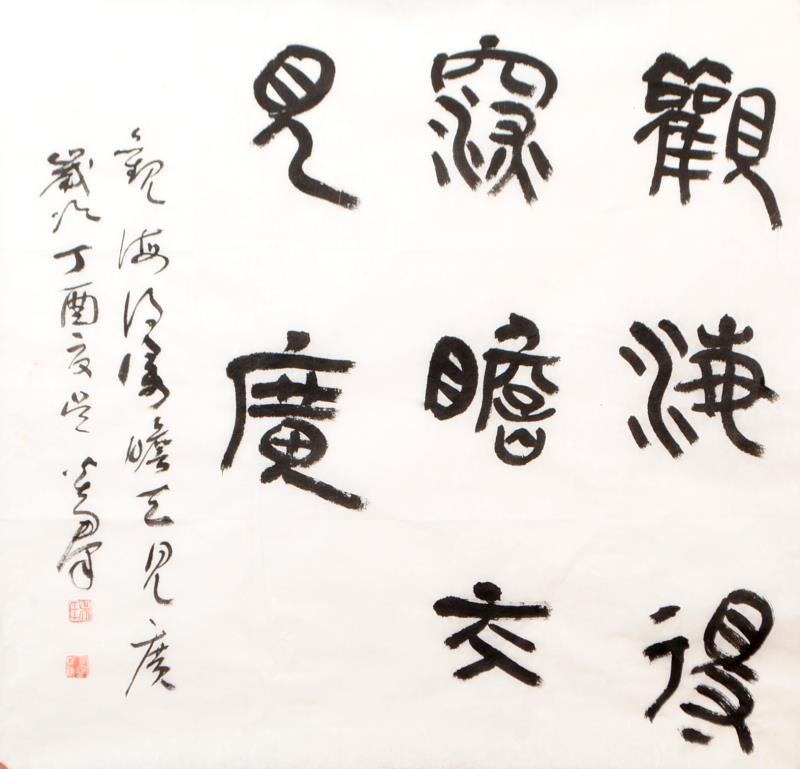 觀海得
深瞻天
見廣
觀海得深瞻天見廣
歲次丁酉夏吳